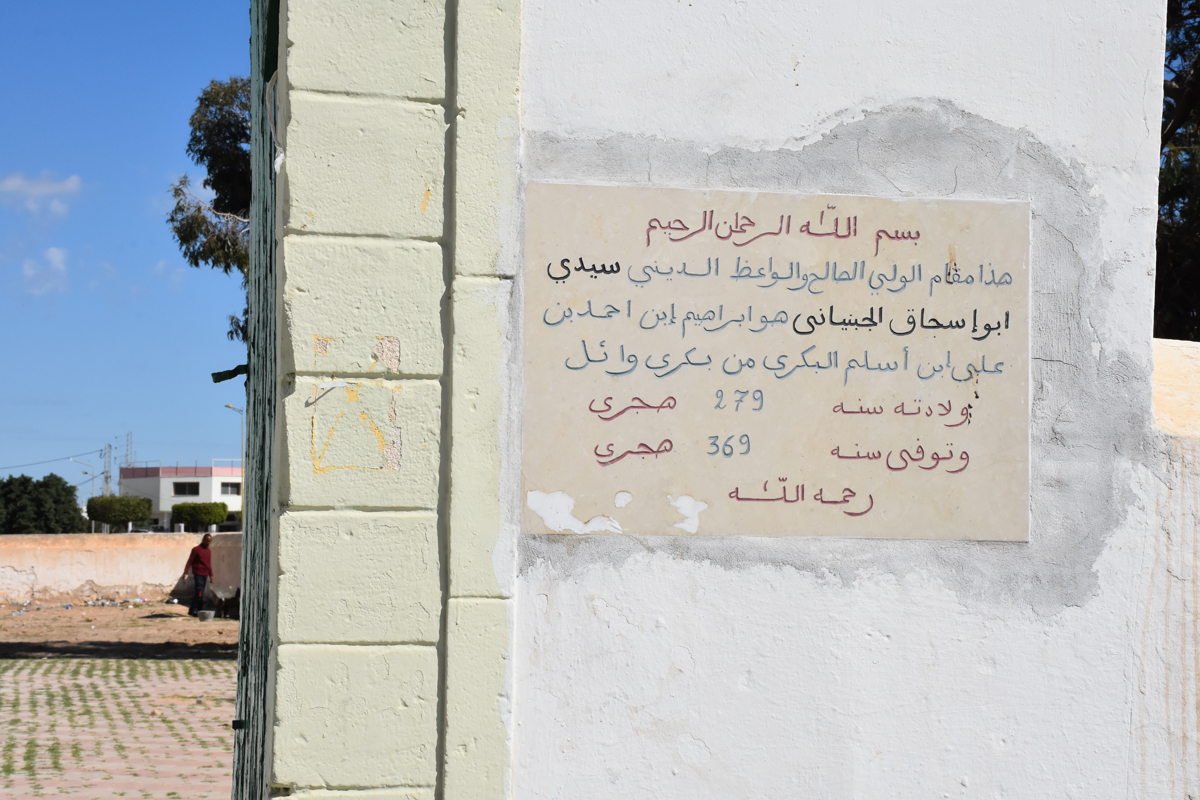 بسم الله الرحمان الرحيم
هذا مقام الولي الصالح والواعظ الديني سيدي
ابو إسحاق الجبنياني هو ابراهيم إبن احمد بن
علي ابن أسلم البكري من بكري وائل
ولادته سنه 279 هجري
وتوفي سنه 369 هجري
رحمه الله